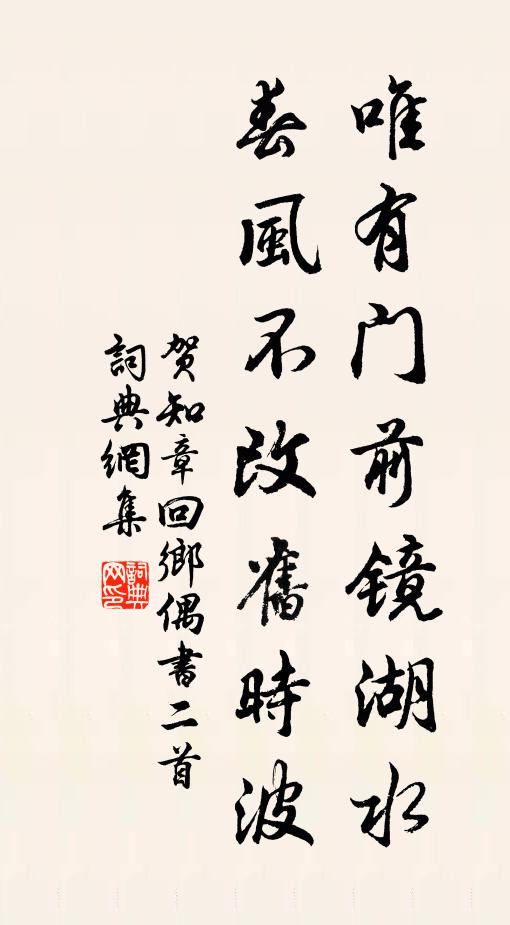 唯有门前鏡湖水
春風不改舊時波
贺知章回鄉偶書二首
詞典網集
詞典网印